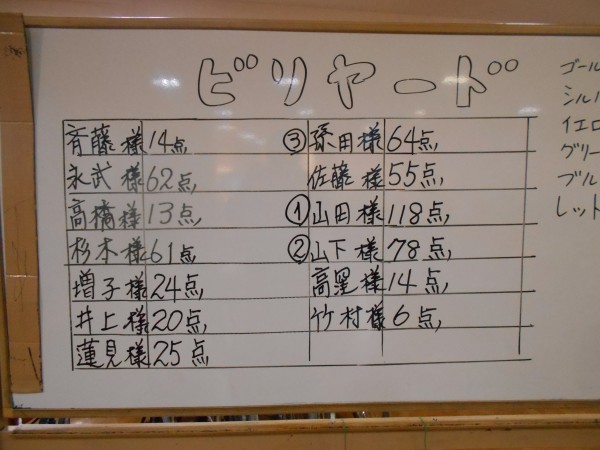 ビリヤード
斉藤様 14点
永武様 62点
高橋様 13点
杉本様 61点
増子様 24点
井上様 20点
蓮見様 25点
③ 孫田様 64点
佐藤様 55点
① 山田様 118点
② 山下様 78点
様 14点
竹村様 6点
ゴール
シル
イエロ
グリー
ブル
レット